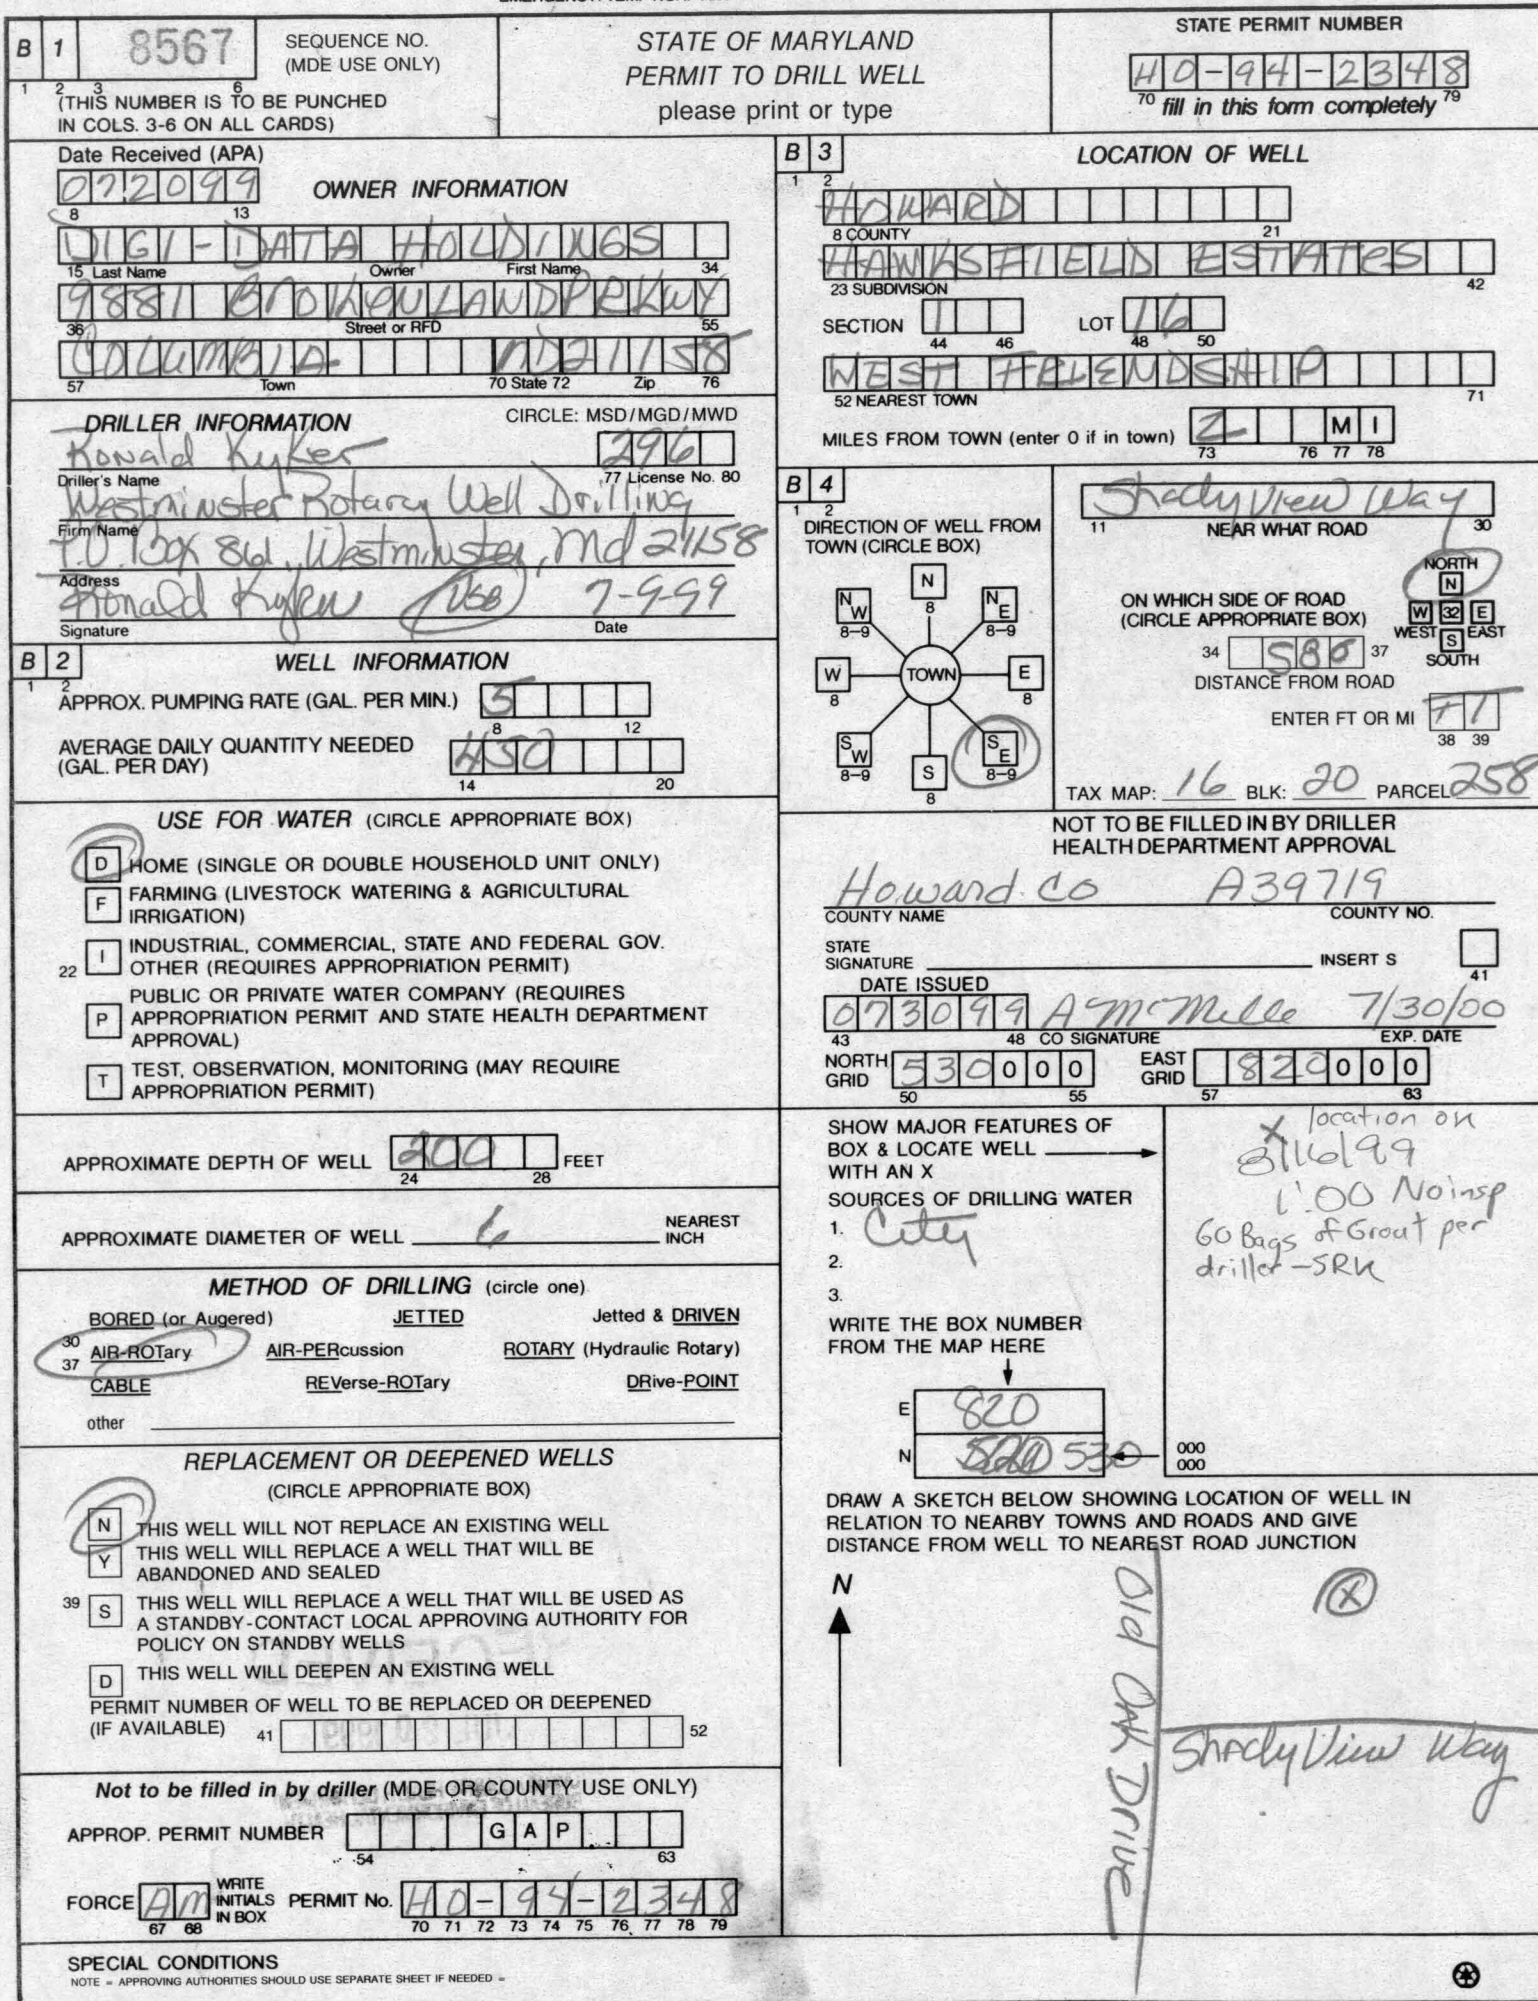 B 1 8567 SEQUENCE NO. (MDE USE ONLY)
1 2 3 6
(THIS NUMBER IS TO BE PUNCHED
IN COLS. 3-6 ON ALL CARDS)
STATE OF MARYLAND
PERMIT TO DRILL WELL
please print or type
STATE PERMIT NUMBER
HO-94-2348
70 fill in this form completely 79
Date Received (APA)
072099
8 13
OWNER INFORMATION
DIGI-DATA HOLDINGS
15 Last Name Owner First Name 34
9881 BROKENLANDPRKWY
36 Street or RFD 55
COLUMBIA MD21158
57 Town 70 State 72 Zip 76
DRILLER INFORMATION CIRCLE: MSD/MGD/MWD
Ronald Kyker 296
Driller's Name 77 License No. 80
Westminster Rotary Well Drilling
Firm Name
P.O. Box 861, Westminster, Md 21158
Address
Ronald Kyker 7-9-99
Signature Date
B 2 WELL INFORMATION
1 2
APPROX. PUMPING RATE (GAL. PER MIN.) 5
8 12
AVERAGE DAILY QUANTITY NEEDED
(GAL. PER DAY) 450
14 20
USE FOR WATER (CIRCLE APPROPRIATE BOX)
D HOME (SINGLE OR DOUBLE HOUSEHOLD UNIT ONLY)
F FARMING (LIVESTOCK WATERING & AGRICULTURAL
IRRIGATION)
22 I INDUSTRIAL, COMMERCIAL, STATE AND FEDERAL GOV.
OTHER (REQUIRES APPROPRIATION PERMIT)
PUBLIC OR PRIVATE WATER COMPANY (REQUIRES
P APPROPRIATION PERMIT AND STATE HEALTH DEPARTMENT
APPROVAL)
T TEST, OBSERVATION, MONITORING (MAY REQUIRE
APPROPRIATION PERMIT)
APPROXIMATE DEPTH OF WELL 200 FEET
24 28
APPROXIMATE DIAMETER OF WELL 6 NEAREST
INCH
METHOD OF DRILLING (circle one)
BORED (or Augered) JETTED Jetted & DRIVEN
30
37 AIR-ROTary AIR-PERcussion ROTARY (Hydraulic Rotary)
CABLE REVerse-ROTary DRive-POINT
other
REPLACEMENT OR DEEPENED WELLS
(CIRCLE APPROPRIATE BOX)
N THIS WELL WILL NOT REPLACE AN EXISTING WELL
Y THIS WELL WILL REPLACE A WELL THAT WILL BE
ABANDONED AND SEALED
39 S THIS WELL WILL REPLACE A WELL THAT WILL BE USED AS
A STANDBY-CONTACT LOCAL APPROVING AUTHORITY FOR
POLICY ON STANDBY WELLS
D THIS WELL WILL DEEPEN AN EXISTING WELL
PERMIT NUMBER OF WELL TO BE REPLACED OR DEEPENED
(IF AVAILABLE) 41 52
Not to be filled in by driller (MDE OR COUNTY USE ONLY)
APPROP. PERMIT NUMBER G A P
54 63
FORCE AM WRITE INITIALS IN BOX PERMIT No. HO-94-2348
67 68 70 71 72 73 74 75 76 77 78 79
SPECIAL CONDITIONS
NOTE = APPROVING AUTHORITIES SHOULD USE SEPARATE SHEET IF NEEDED =
B 3 LOCATION OF WELL
1 2
HOWARD
8 COUNTY 21
HAWKSFIELD ESTATES
23 SUBDIVISION 42
SECTION 1 LOT 16
44 46 48 50
WEST FRIENDSHIP
52 NEAREST TOWN 71
MILES FROM TOWN (enter 0 if in town) 2 M I
73 76 77 78
B 4
1 2
DIRECTION OF WELL FROM
TOWN (CIRCLE BOX)
N
8
NW
8-9
NE
8-9
W
8
TOWN
E
8
SW
8-9
S
8
SE
8-9
Shady View Way
11 NEAR WHAT ROAD 30
ON WHICH SIDE OF ROAD
(CIRCLE APPROPRIATE BOX)
NORTH
N
W 32 E
WEST S EAST
SOUTH
34 586 37
DISTANCE FROM ROAD
ENTER FT OR MI FT
38 39
TAX MAP: 16 BLK: 20 PARCEL 258
NOT TO BE FILLED IN BY DRILLER
HEALTH DEPARTMENT APPROVAL
Howard Co A39719
COUNTY NAME COUNTY NO.
STATE
SIGNATURE INSERT S
41
DATE ISSUED
073099 7/30/00
43 48 CO SIGNATURE EXP. DATE
NORTH
GRID 530000 EAST
GRID 820000
50 55 57 63
SHOW MAJOR FEATURES OF
BOX & LOCATE WELL
WITH AN X
SOURCES OF DRILLING WATER
1. City
2.
3.
WRITE THE BOX NUMBER
FROM THE MAP HERE
E 820
N 530
000
000
X location on
8/16/99
1:00 No insp
60 Bags of Grout per
driller -SRK
DRAW A SKETCH BELOW SHOWING LOCATION OF WELL IN
RELATION TO NEARBY TOWNS AND ROADS AND GIVE
DISTANCE FROM WELL TO NEAREST ROAD JUNCTION
N
X
Old Oak Drive
Shady View Way